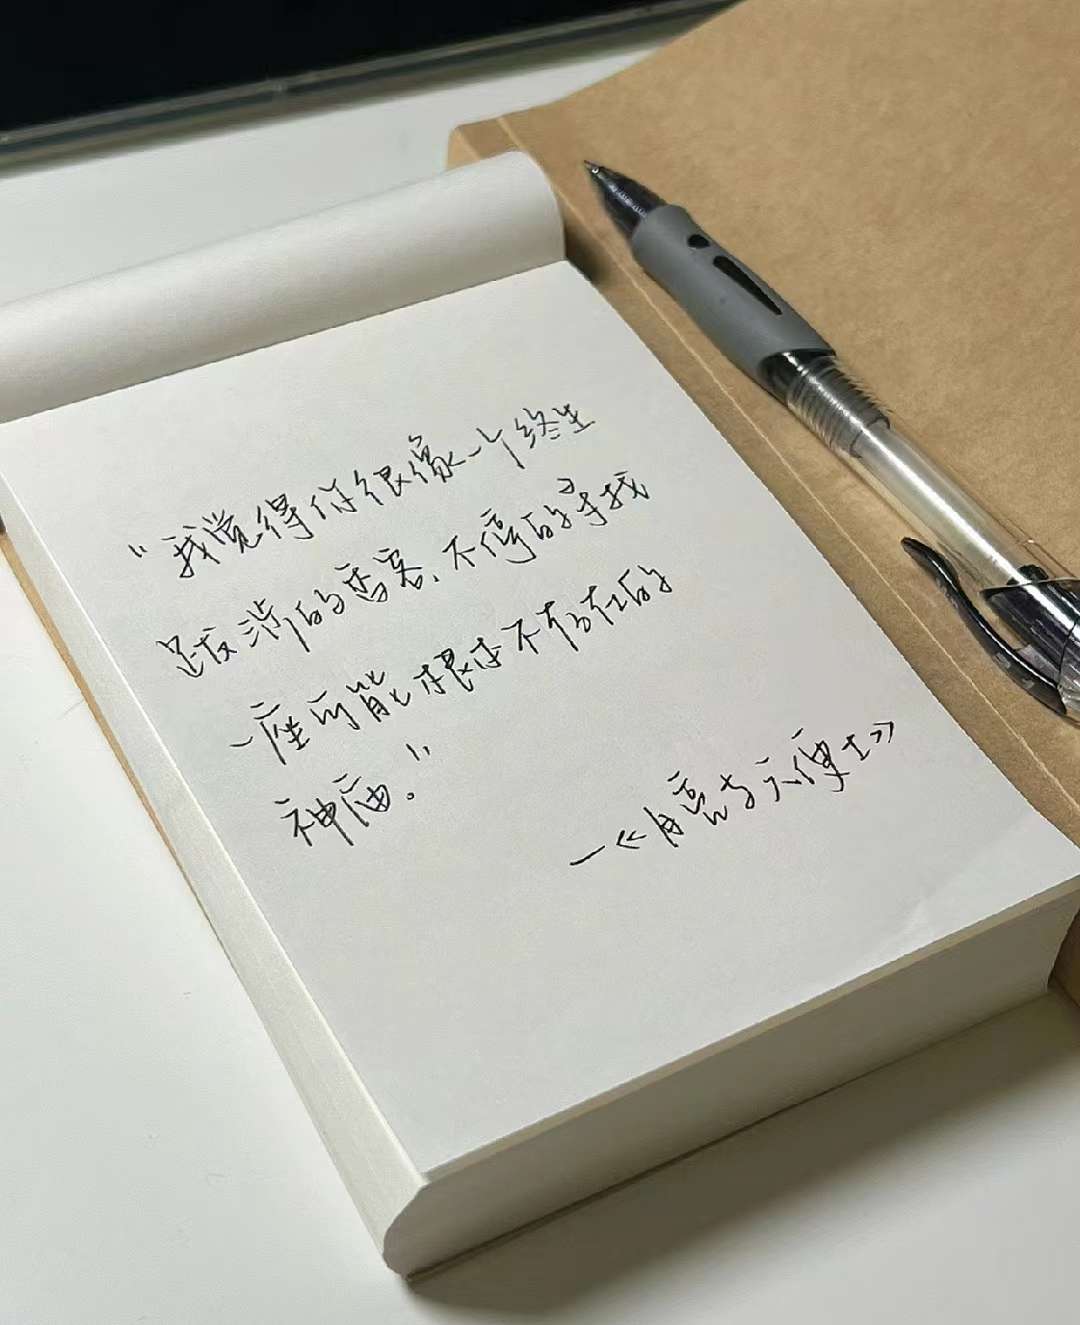 “我觉得你很像一个终生
跋涉的香客,不停的寻找
一座可能根本不存在的
神庙.”
—《月亮与六便士》